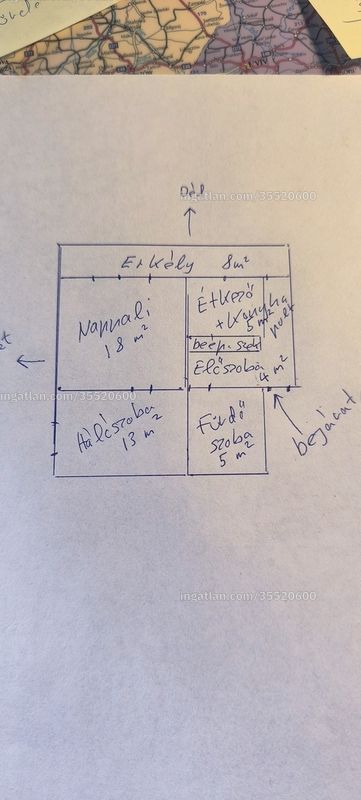 Dél
ingatlan.com/35520600
Erkély 8m²
Nappali
18 m²
Étkező
+ Konyha
5 m²
pult
beép. szek
Előszoba
4 m²
ingatlan.com/35520600
Hálószoba
13 m²
Fürdő
szoba
5 m²
bejárat
ingatlan.com/35520600